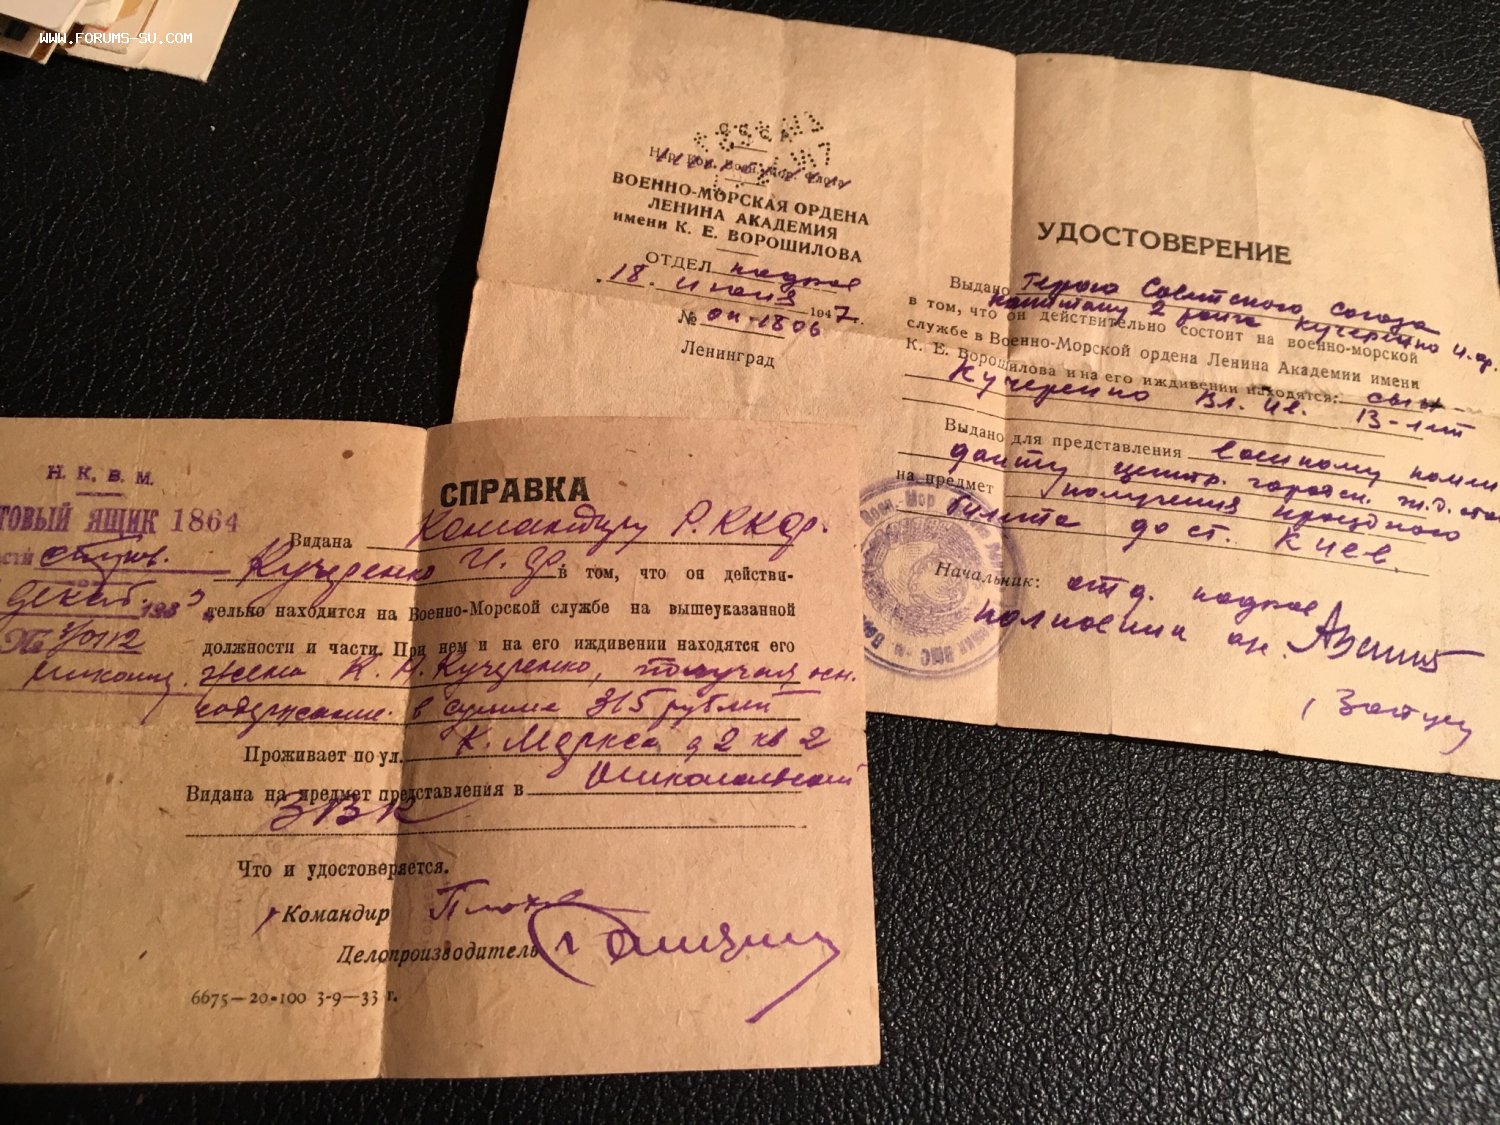 WWW.FORUMS-SU.COM
С.С.С.Р.
Нар. Ком. Воен. Мор. Флота
ВОЕННО-МОРСКАЯ ОРДЕНА
ЛЕНИНА АКАДЕМИЯ
имени К. Е. ВОРОШИЛОВА
ОТДЕЛ кадров
18. июня 1947 г.
№ ОК-1806
Ленинград
УДОСТОВЕРЕНИЕ
Выдано Герою Советского Союза
капитану 2 ранга Кучеренко И. Ф.
в том, что он действительно состоит на военно-морской
службе в Военно-Морской ордена Ленина Академии имени
К. Е. Ворошилова и на его иждивении находятся: сын
Кучеренко Вл. Ив. 13-лет
Выдано для представления военному комен
данту центр. городск. ж.д. стан
на предмет получения проездного
билета до ст. Киев.
Начальник: отд. кадров
полковник
Н. К. В. М.
ТОВЫЙ ЯЩИК 1864
декаб. 193
СПРАВКА
Видана Командиру РККФ.
Кучеренко И. Ф. в том, что он действи-
тельно находится на Военно-Морской службе на вышеуказанной
должности и части. При нем и на его иждивении находятся его
жена К. Н. Кучеренко, получая
содержание в сумме 315 рублей
Проживает по ул. К. Маркса д 2 кв 2
Видана на предмет представления в Николаевский
ЗВК
Что и удостоверяется.
Командир
Делопроизводитель
6675—20•100 3-9—33 г.